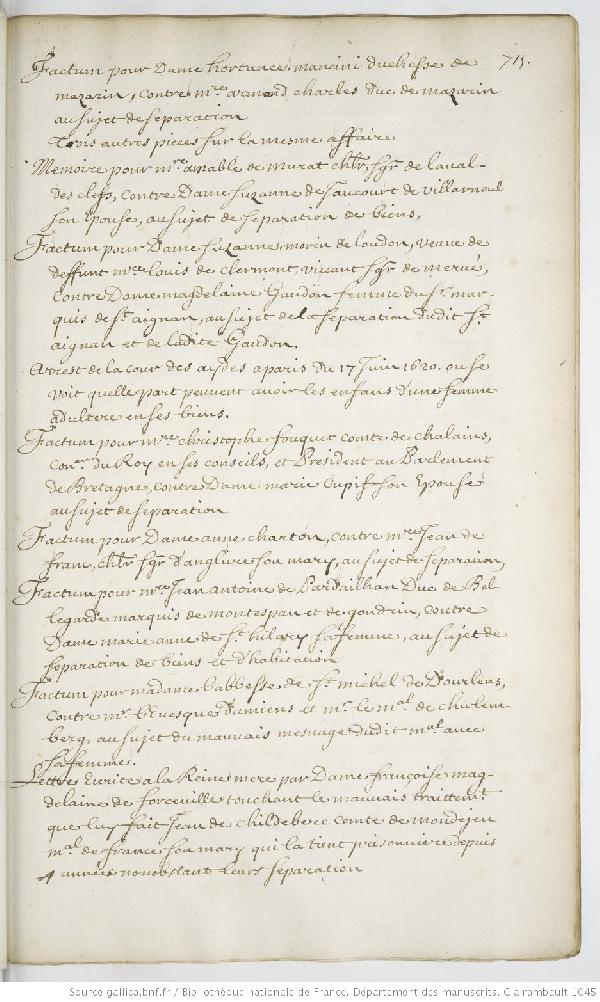 Factum pour Dame hortance mancini duchesse de 715.
mazarin, contre mre armand charles Duc de mazarin
au sujet de separation
Trois autres pieces sur la mesme affaire
Memoire pour mre amable de murat chlr, sgr de laval-
des clefs, contre Dame suzanne de faucourt de villarnoul
son Epouse, au sujet de separation de biens,
Factum pour Dame suzanne morin de loudon, veuve de
deffunt mre louis de clermont, vivant sgr de mervé,
contre Dame magdelaine Gaudon femme du sr. mar-
quis de st. aignan, au sujet de la separation dudit st.
aignan et de ladite Gaudon.
Arrest de la cour des aydes a paris du 17 Juin 1620. ou se
voit quelle part peuvent avoir les enfans d'une femme
adultere en ses biens.
Factum pour mre christophe fouquet comte de chalains,
conr. du Roy en ses conseils, et President au Parlement
de Bretagne, contre Dame marie Cupif son Epouse
au sujet de separation
Factum pour Dame anne charton, contre mre Jean de
franc, chlr sgr d'anglure son mary, au sujet de separation,
Factum pour mre Jean antoine de Pardaillhan Duc de Bel
legarde marquis de montespan et de gondrin, contre
Dame marie anne de st. hilary sa femme, au sujet de
separation de biens et d'habitation
Factum pour madame l'abbesse de st. michel de Dourlens,
contre mr. l'Evesque d'amiens et mr. le mal. de chulem-
berg, au sujet du mauvais mesnage dudit mal. avec
sa femme.
Lettre Escrite a la Reine mere par Dame françoise mag-
delaine de forceville touchant le mauvais traittemt.
que luy fait Jean de childeberc comte de mondejeu
mal. de france son mary qui la tient prisonniere depuis
4 années nonobstant leurs separation
Source gallica.bnf.fr / Bibliothèque nationale de France. Département des manuscrits. Clairambault 1045